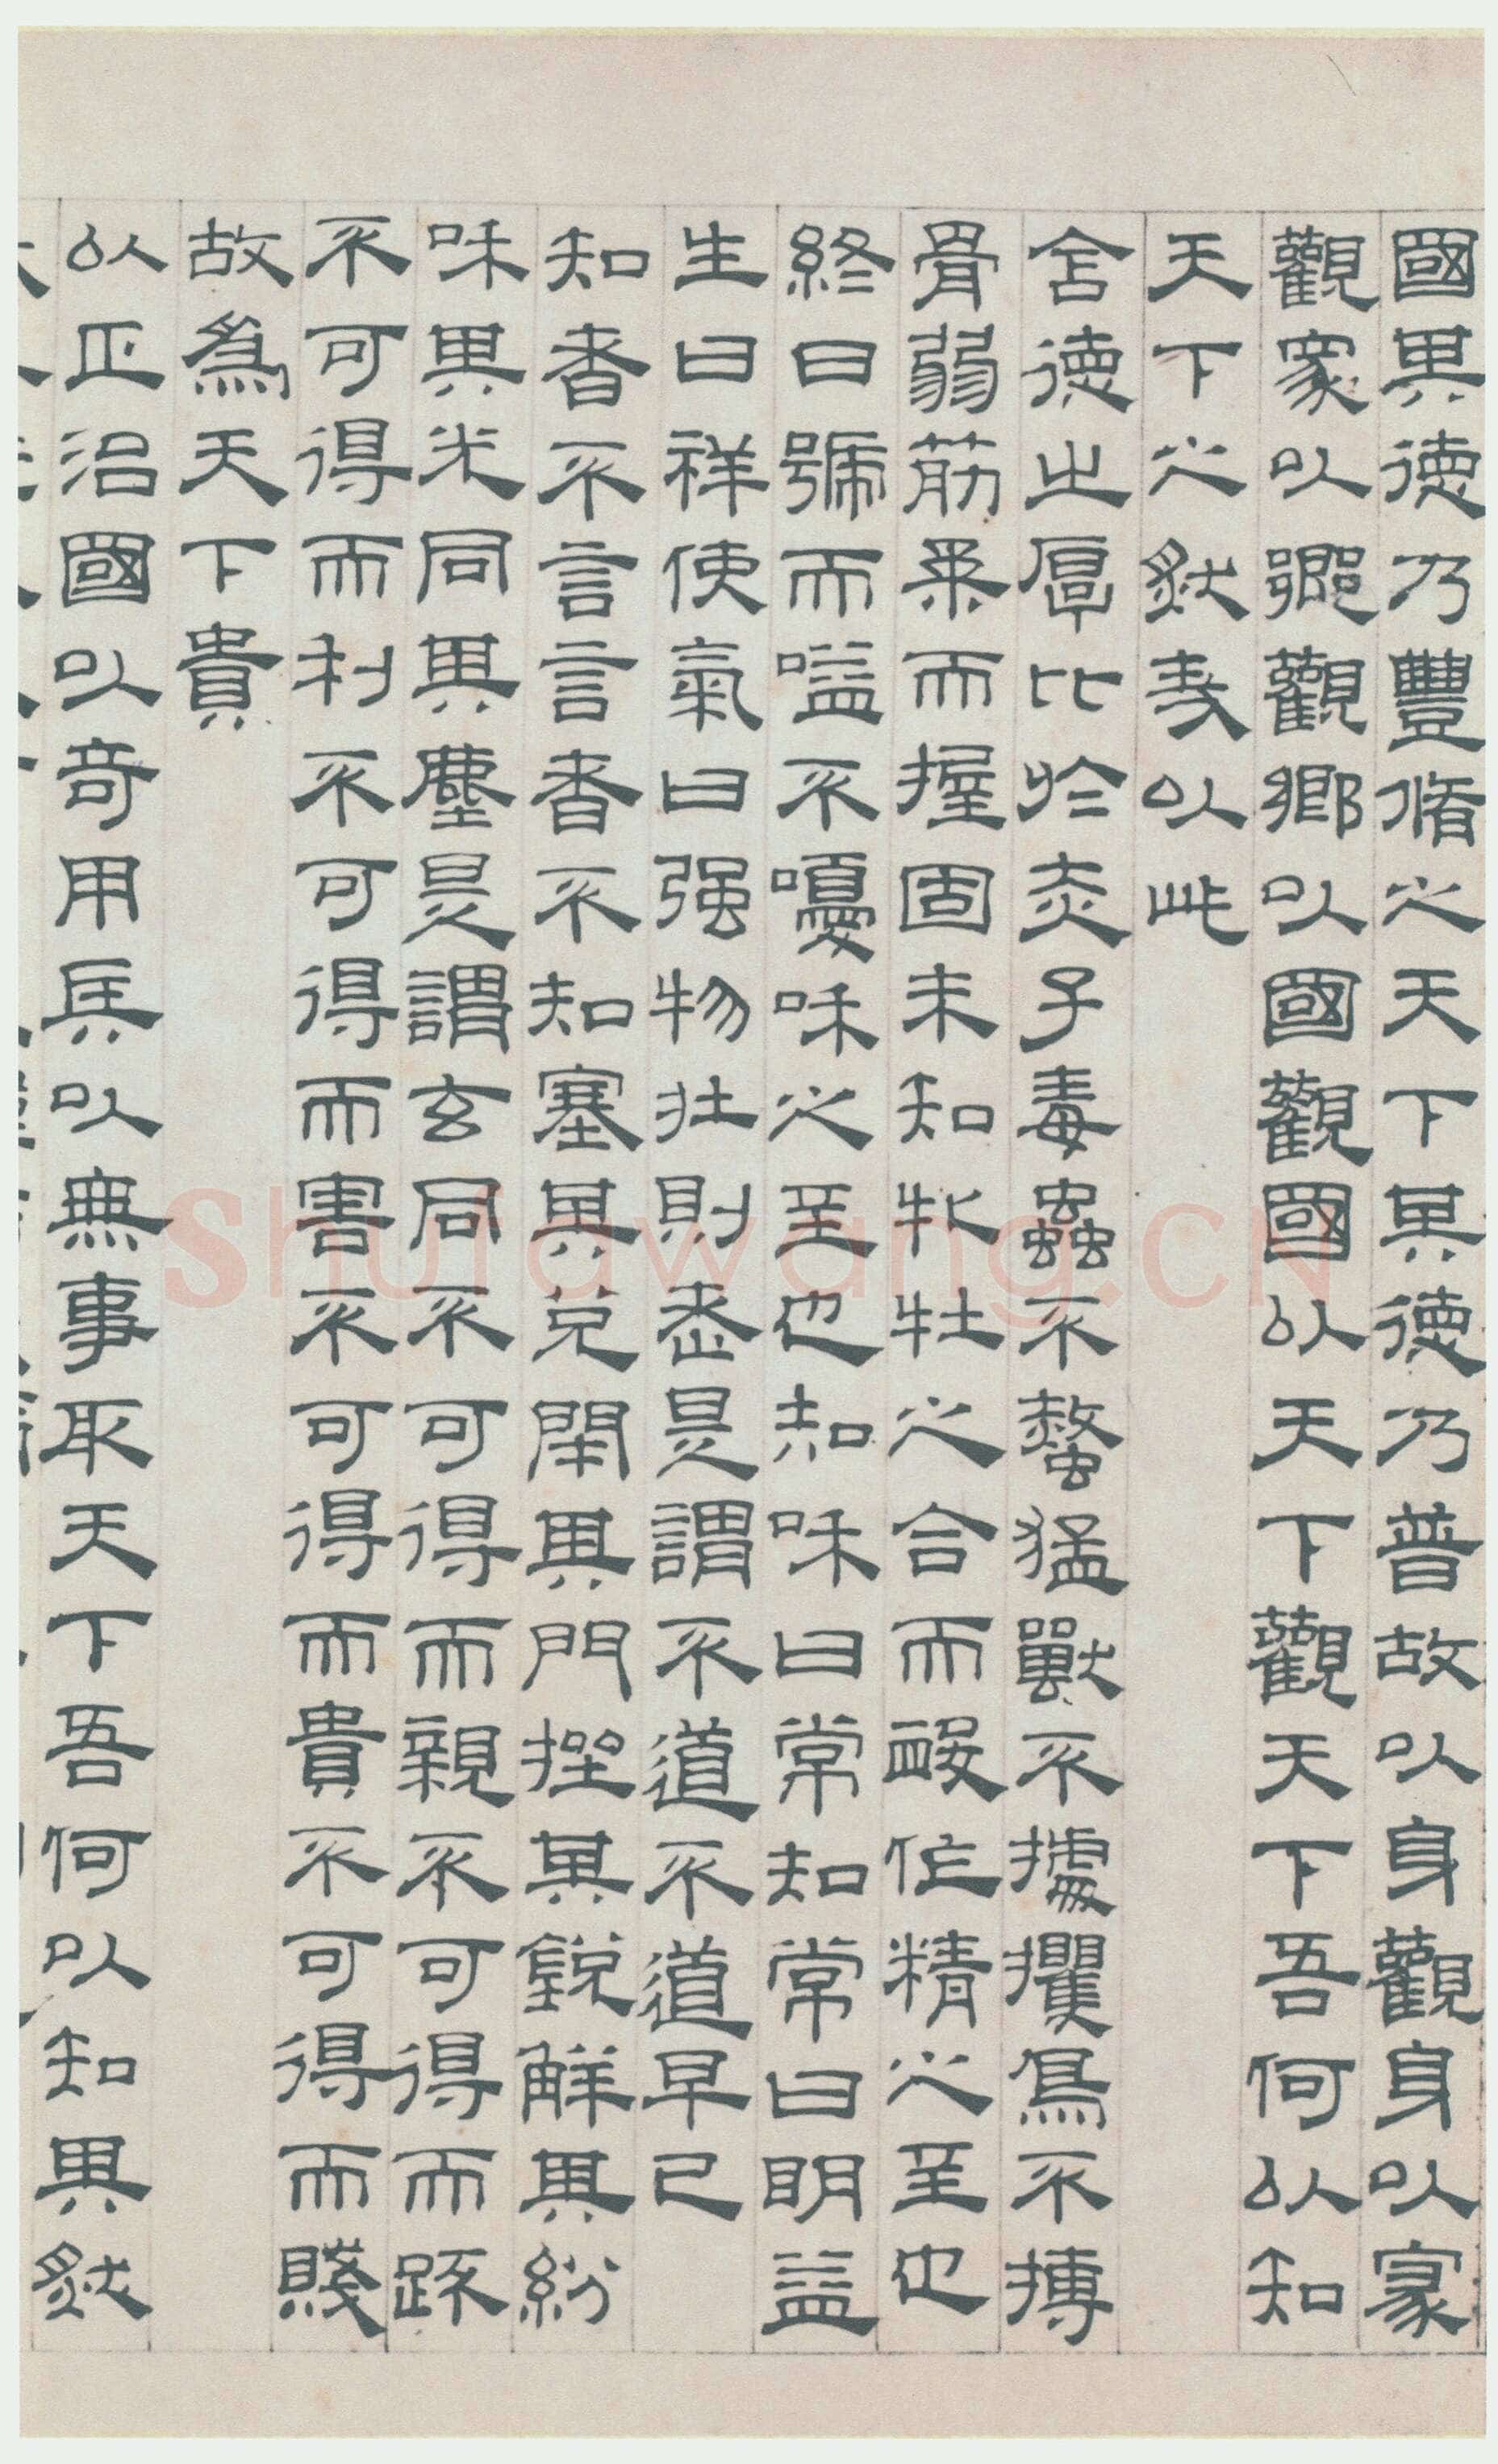 國其德乃豐脩之天下其德乃普故以身觀身以家
觀家以鄉觀鄉以國觀國以天下觀天下吾何以知
天下之然哉以此
含德之厚比於赤子毒蟲不螫猛獸不據攫鳥不搏
骨弱筋柔而握固未知牝牡之合而䘒作精之至也
終日號而嗌不嗄和之至也知和曰常知常曰明益
生曰祥使氣曰强物壯則老是謂不道不道早已
知者不言言者不知塞其兌閉其門挫其銳解其紛
和其光同其塵是謂玄同不可得而親不可得而踈
不可得而利不可得而害不可得而貴不可得而賤
故爲天下貴
以正治國以奇用兵以無事取天下吾何以知其然
Shufawang.CN